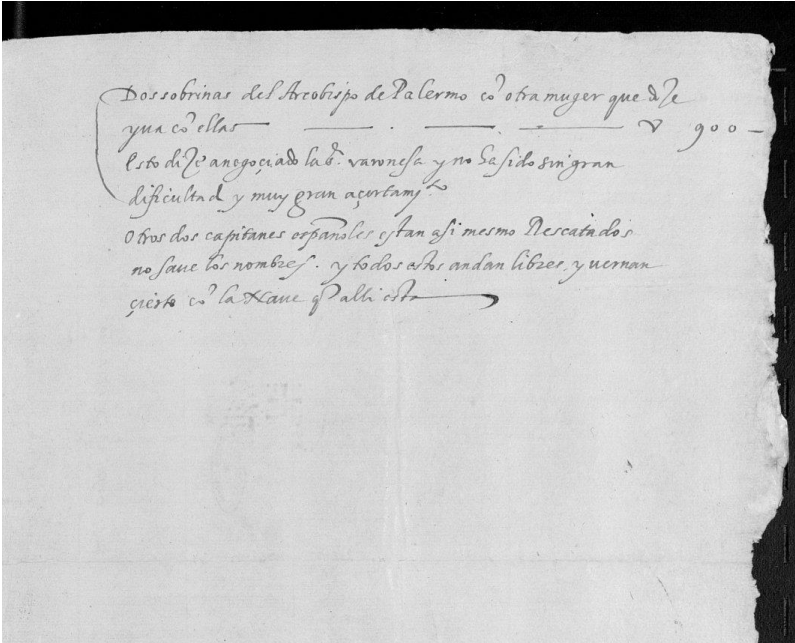 Dos sobrinas del Arcobispo de Palermo cō otra muger que dize
yua cō ellas 900
Esto dize a negoçiado la varonesa y no ha sido sin gran
dificultad y muy gran
Otros dos capitanes españoles estan asi mesmo Rescatados
no saue los nombres. y todos estos andan libres, y vernan
çierto cō la Naue q̄ alli esta